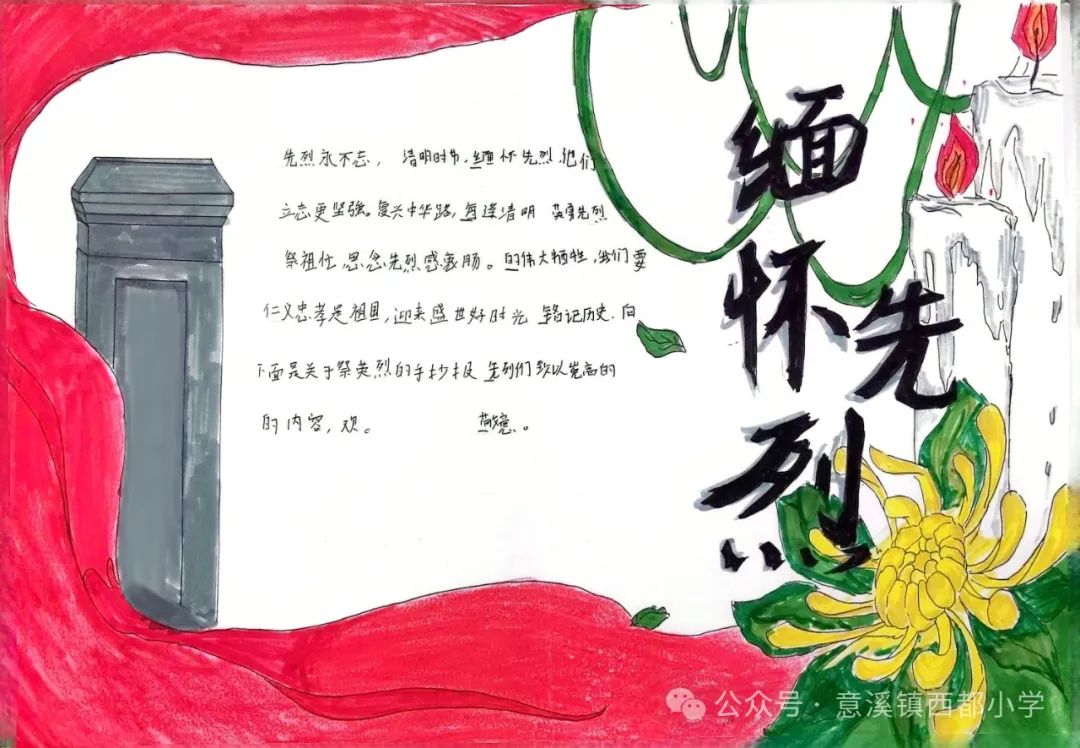 缅怀先烈
先烈永不忘， 清明时节，缅怀先烈，他们
立志更坚强。复兴中华路，每逢清明 英勇先烈
祭祖忙，思念先烈感衷肠。的伟大牺牲，我们要
仁义忠孝是祖国，迎来盛世好时光 铭记历史，向
下面是关于祭英烈的手抄报 先烈们致以崇高的
的内容，欢。 敬意。
公众号·意溪镇西都小学